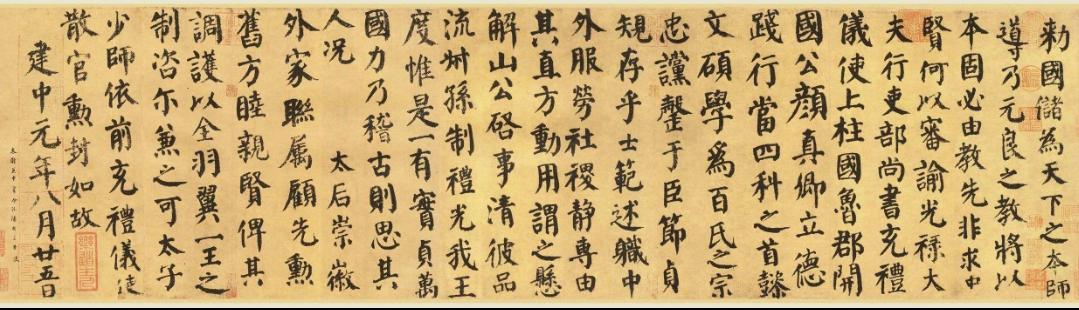 勅國儲為天下之本師
導乃元良之教將以
本固必由教先非求忠
賢何以審諭光祿大
夫行吏部尚書充禮
儀使上柱國魯郡開
國公顏真卿立德
踐行當四科之首懿
文碩學爲百氏之宗
忠讜罄于臣節貞
規存乎士範述職中
外服勞社稷靜專由
其直方動用謂之懸
解山公啓事清彼品
流叔孫制禮光我王
度惟是一有實貞萬
國力乃稽古則思其
人況 太后崇徽
外家聯屬顧先勳
舊方睦親賢俾其
調護以全羽翼一王之
制咨尔兼之可太子
少師依前充禮儀使
散官勳封如故
建中元年八月廿五日